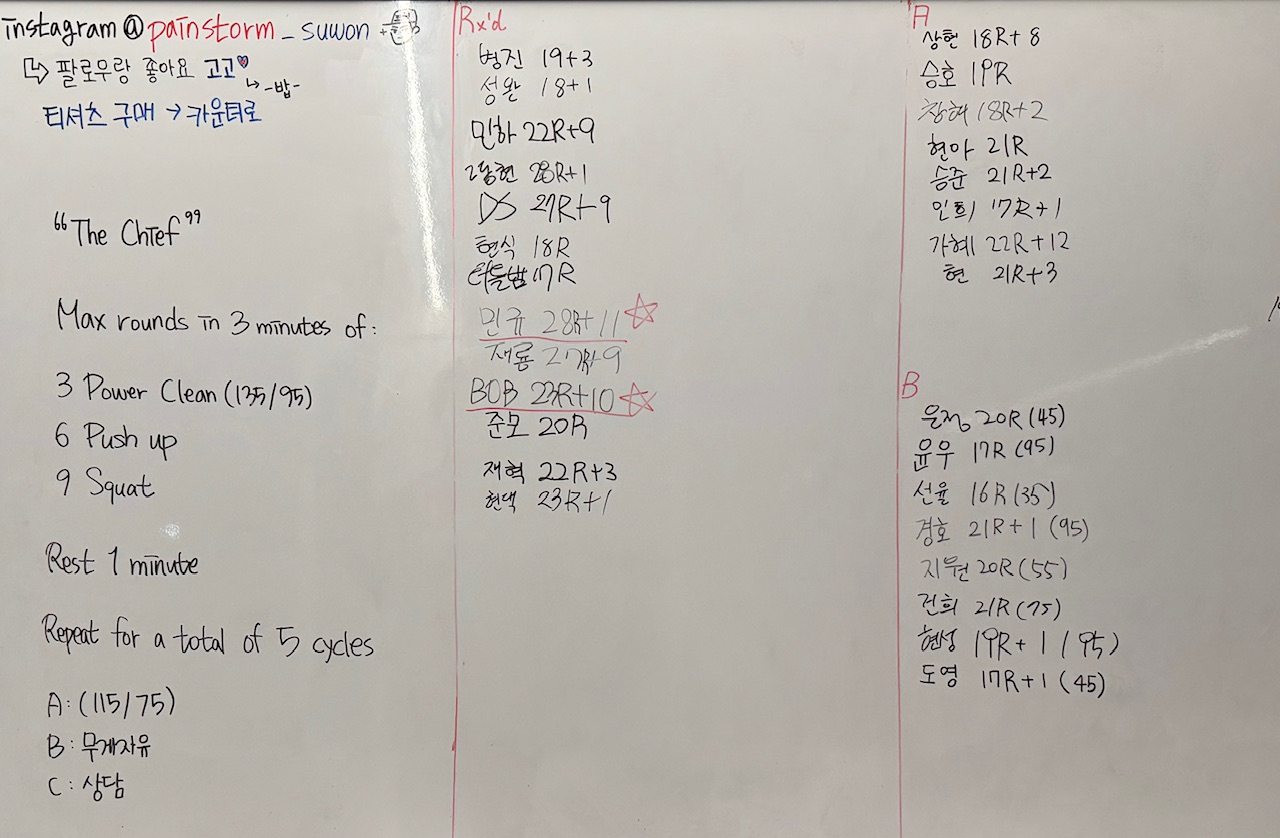 instagram@painstorm_suwon
팔로우랑 좋아요 고고
-밥-
티셔츠 구매 → 카운터로
"The Chief"
Max rounds in 3 minutes of:
3 Power Clean (135/95)
6 Push up
9 Squat
Rest 1 minute
Repeat for a total of 5 cycles
A: (115/75)
B: 무게자유
C: 상담
Rx'd
병진 19+3
성완 18+1
민하 22R+9
28R+1
DS 27R+9
현식 18R
17R
민규 28R+11
재룡 27R+9
BOB 23R+10
준모 20R
재혁 22R+3
현택 23R+1
A
상현 18R+8
승호 19R
창혁 18R+2
현아 21R
승준 21R+2
인희 17R+1
가혜 22R+12
현 21R+3
B
은정 20R (45)
윤우 17R (95)
선율 16R (35)
경호 21R+1 (95)
지원 20R (55)
건희 21R (75)
현성 19R+1 (95)
도영 17R+1 (45)